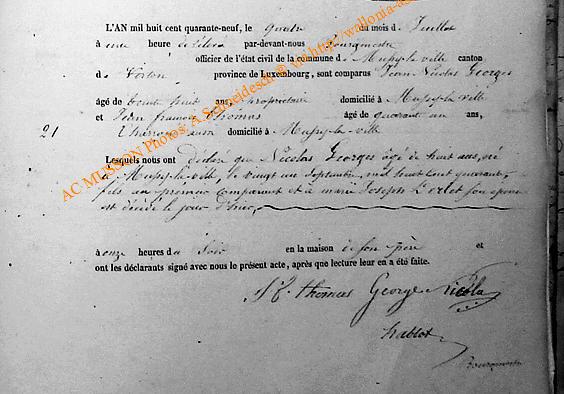 L'AN mil huit cent quarante-neuf, le quatre du mois de Juillet
à une heure de relevée par-devant-nous Bourgmestre
officier de l'état civil de la commune de Mussy-la-ville canton
de Virton province de Luxembourg, sont comparus Jean Nicolas Georges
âgé de trente huit ans, propriétaire domicilié à Mussy-la-ville
et Jean François Thomas âgé de quarante un ans,
21 Charron aussi domicilié à Mussy-la-ville
Lesquels nous ont déclaré que Nicolas Georges âgé de huit ans, né
à Mussy-la-ville, le vingt un Septembre, mil huit cent quarante,
fils au premier comparant et à marie Joseph son épouse
est décédé le jour d'hier,
à onze heures du Soir en la maison de son père et
ont les déclarants signé avec nous le présent acte, après que lecture leur en a été faite.
J f. thomas George Nicolas
hablot
Bourgmestre
AC MUSSON Photos: A.Schneidesch © via http://wallonia-as